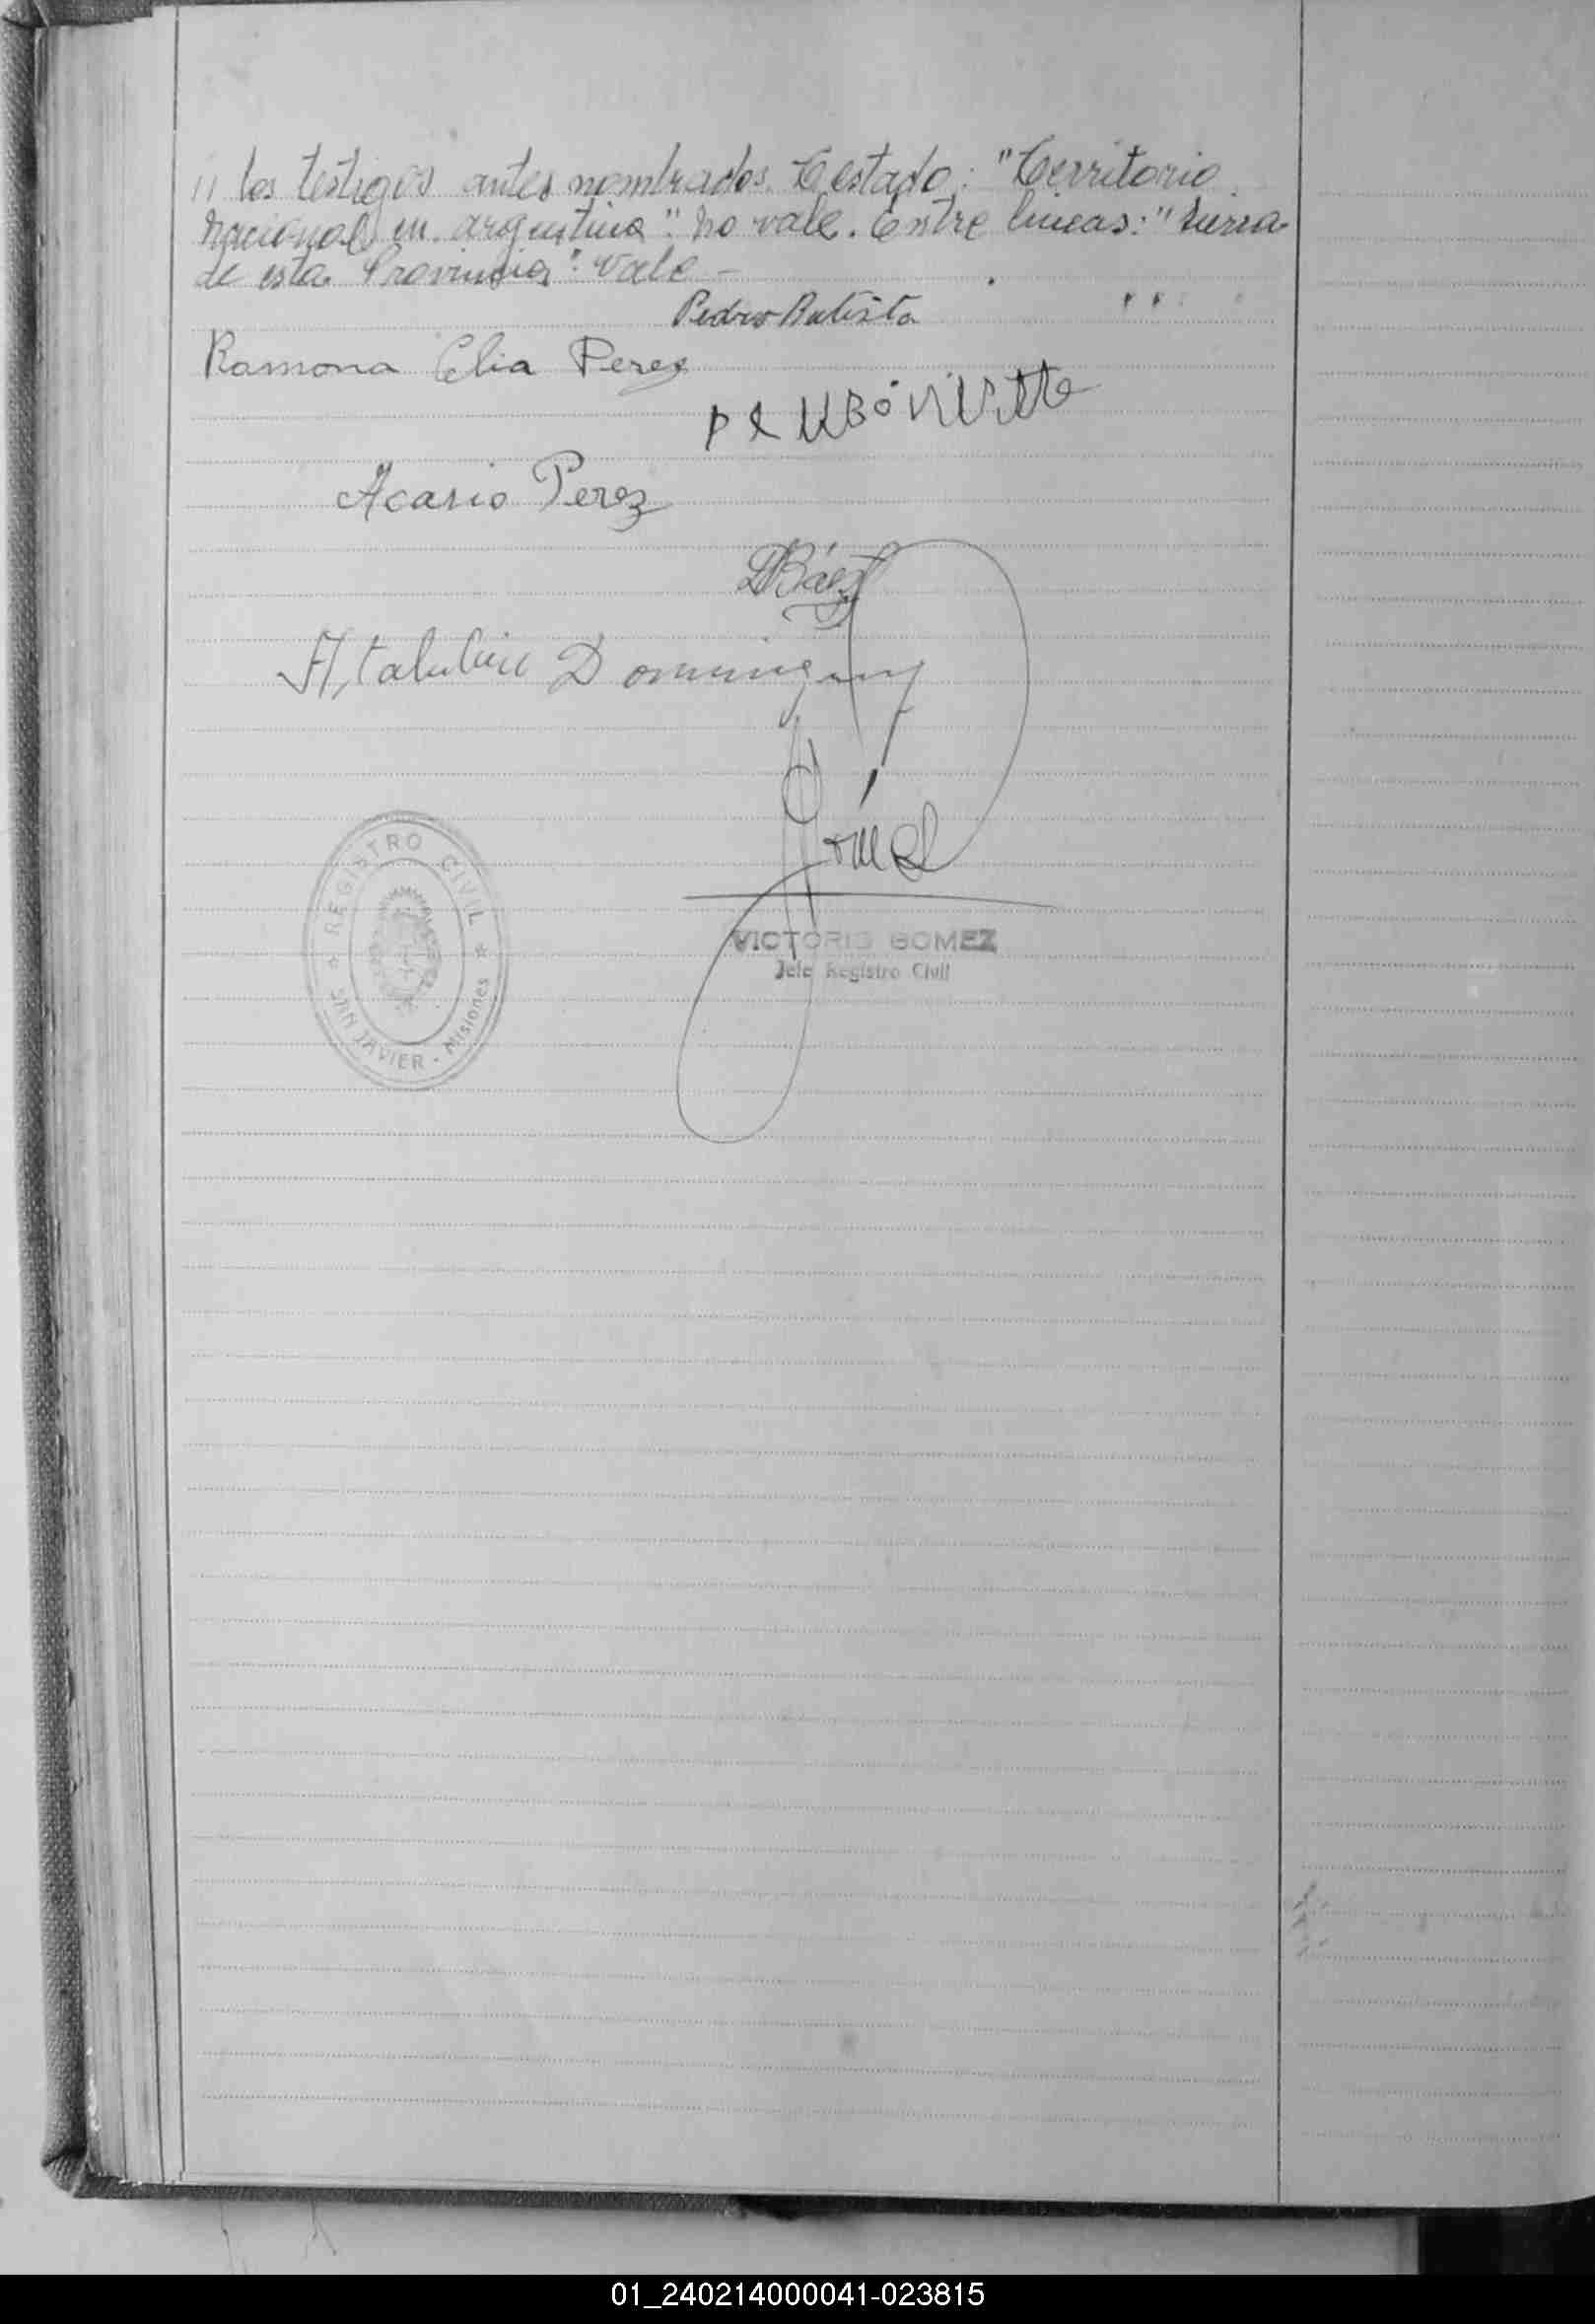 // los testigos antes nombrados. Testado: "Territorio
nacional en argentina": no vale. Entre lineas: "
de esta Provincia": vale -
Pedro Batista
Ramona Elia Perez
Acasio Perez
Báez
Gómez
VICTORIO GOMEZ
Jefe Registro Civil
REGISTRO CIVIL
SAN JAVIER - Misiones
01_240214000041-023815